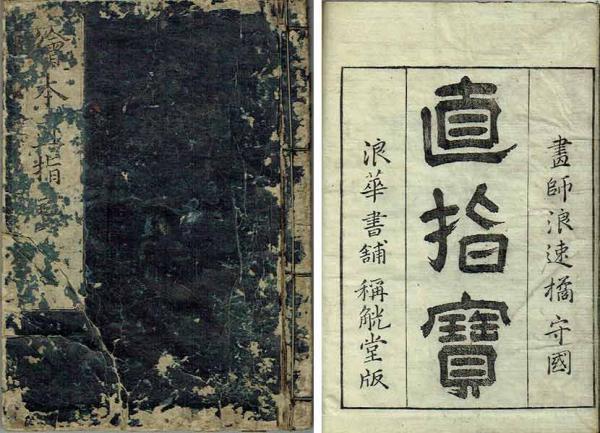 繪本直指寳
畫師浪速橘守國
直指寶
浪華書舖 稱觥堂版